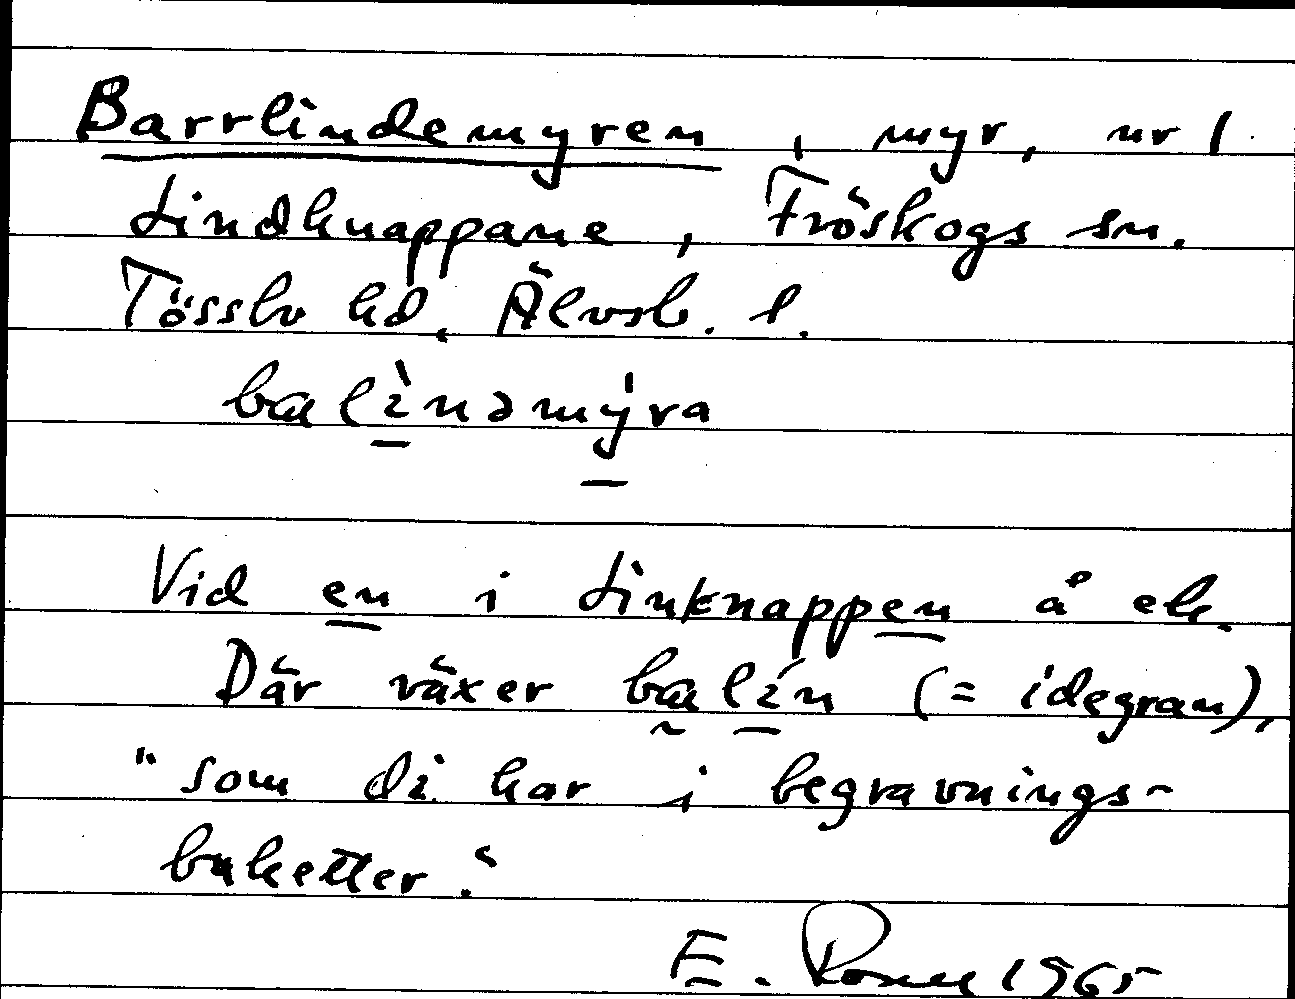 Barrlindemyren, myr, nr 1
Lindknappane, Fröskogs sn.
Tössbo hd. Älvsb. l.
balìnəmy̍ra
Vid en i Linknappen å ek.
Där växer balín (= idegran),
"som di har i begravnings-
buketter."
E. 1965